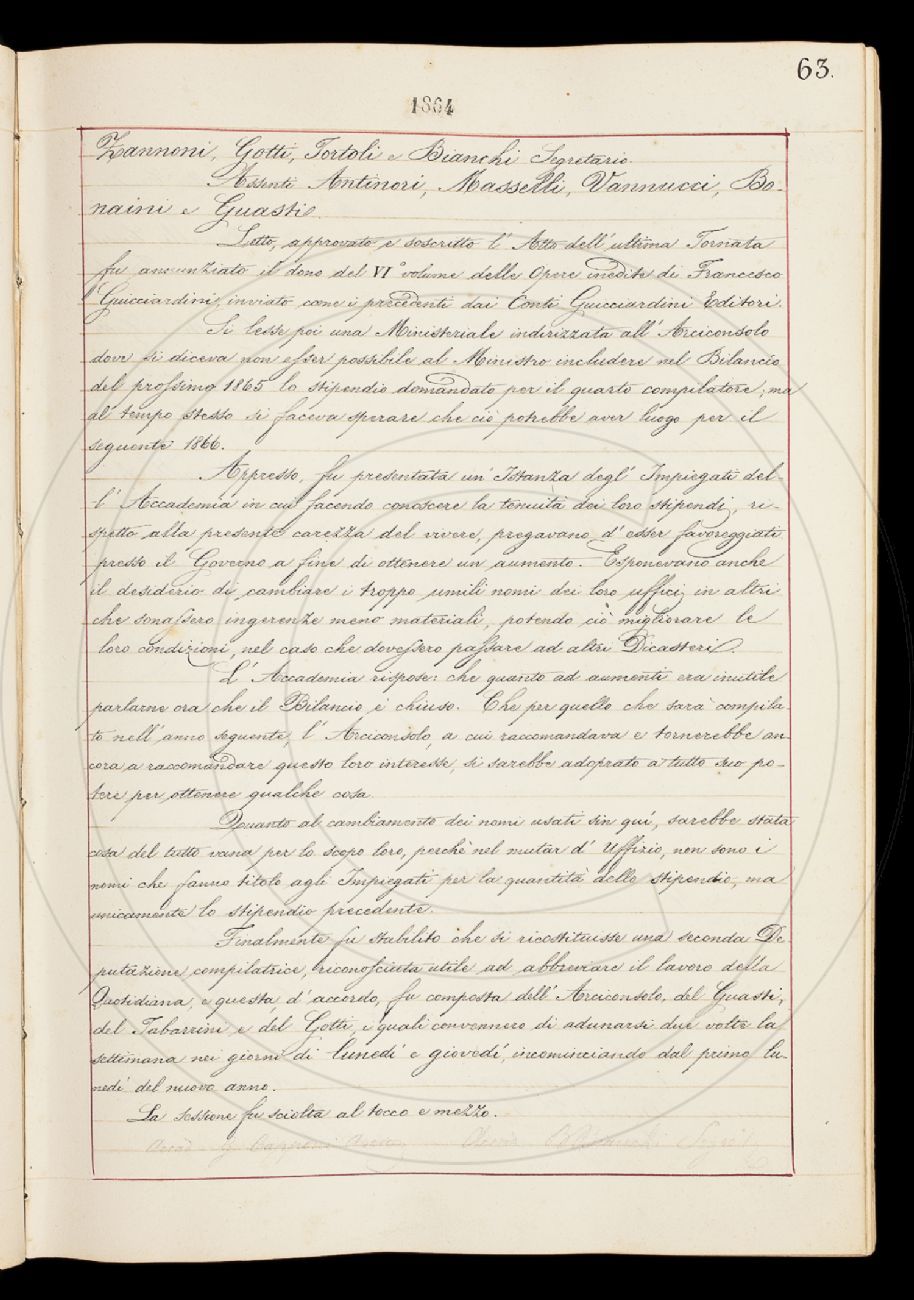 63.
1864
Zannoni, Gotti, Tortoli e Bianchi Segretario.
Assenti Antinori, Masselli, Vannucci, Bo-
naini e Guasti.
Letto, approvato e soscritto l' Atto dell' ultima Tornata
fu annunziato il dono del VI° volume delle Opere inedite di Francesco
Guicciardini, inviato come i precedenti dai Conti Guicciardini Editori.
Si lesse poi una Ministeriale indirizzata all' Arciconsolo
dove si diceva non esser possibile al Ministro includere nel Bilancio
del prossimo 1865 lo stipendio domandato per il quarto compilatore; ma
al tempo stesso si faceva sperare che ciò potrebbe aver luogo per il
seguente 1866.
Appresso, fu presentata un' Istanza degl' Impiegati del-
l' Accademia in cui facendo conoscere la tenuità dei loro stipendi, ri-
spetto alla presente carezza del vivere, pregavano d' esser favoreggiati
presso il Governo a fine di ottenere un aumento. Esponevano anche
il desiderio di cambiare i troppo umili nomi dei loro uffici, in altri
che sonassero ingerenze meno materiali, potendo ciò migliorare le
loro condizioni, nel caso che dovessero passare ad altri Dicasteri.
L' Accademia rispose: che quanto ad aumenti era inutile
parlarne ora che il Bilancio è chiuso. Che per quello che sarà compila-
to nell' anno seguente, l' Arciconsolo, a cui raccomandava e tornerebbe an-
cora a raccomandare questo loro interesse, si sarebbe adoprato a tutto suo po-
tere per ottenere qualche cosa.
Quanto al cambiamento dei nomi usati sin quì, sarebbe stata
cosa del tutto vana per lo scopo loro, perchè nel mutar d' Uffizio, non sono i
nomi che fanno titolo agli Impiegati per la quantità dello stipendio, ma
unicamente lo stipendio precedente.
Finalmente fu stabilito che si ricostituisse una seconda De-
putazione compilatrice, riconosciuta utile ad abbreviare il lavoro della
Quotidiana, e questa, d' accordo, fu composta dell' Arciconsolo, del Guasti,
del Tabarrini e del Gotti, i quali convennero di adunarsi due volte la
settimana nei giorni di lunedì e giovedì, incominciando dal primo lu-
nedì del nuovo anno.
La sessione fu sciolta al tocco e mezzo.